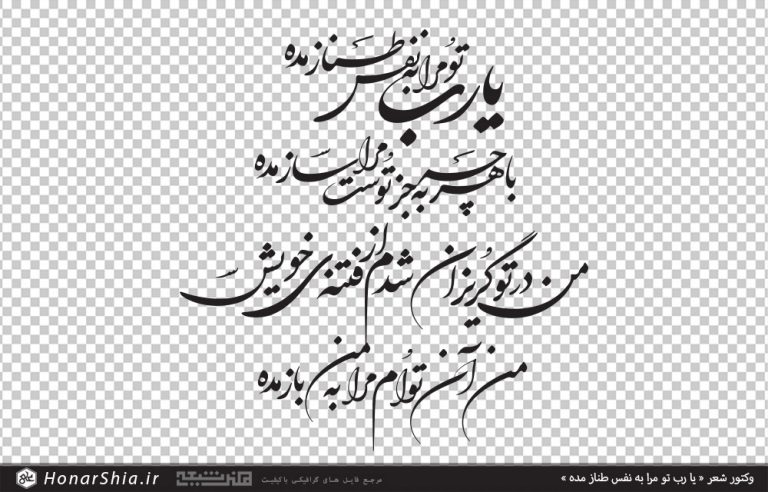 یا رب تو مرا به نفس طناز مده
با هر چه به جز توست مرا ساز مده
من در تو گریزان شدم از فتنه‌ی خویش
من آن توام مرا به من باز مده
وکتور شعر « یا رب تو مرا به نفس طناز مده »
مرجع فایل های گرافیکی باکیفیت
هنر شیعه
HonarShia.ir